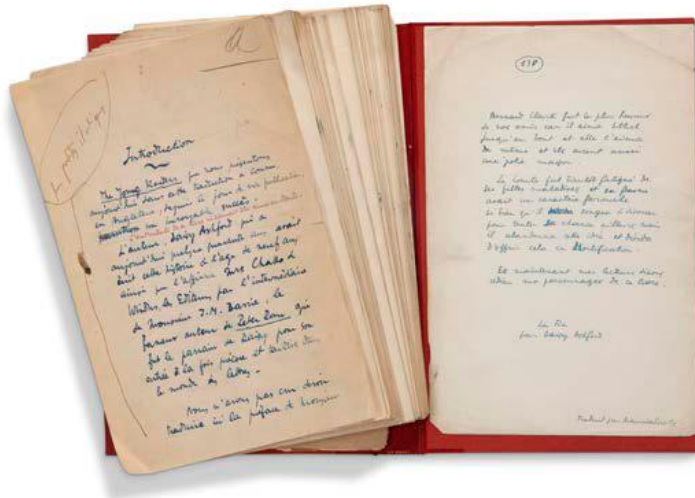 Introduction
The Young Visiters, que nous présentons
aujourd'hui dans cette traduction a connu
en Angleterre, depuis le jour de sa publication,
un incroyable succès.
L'auteur, Daisy Ashford qui a
aujourd'hui quelque quarante ans, avait
écrit cette histoire à l'age de neuf ans
ainsi que l'affirme Mrs Chatto &
Windus, les Editeurs par l'intermédiaire
de Monsieur J.M. Barrie, le
fameux auteur de Peter Pan, qui
fut le parrain de Daisy pour son
entrée à la fois précoce et dans
le monde des lettres.
Nous n'avons pas cru devoir
traduire ici la préface de Monsieur
138
Bernard Clark fut le plus heureux
de nos amis car il aima Ethel
jusqu'au bout et elle l'aima
de même et ils eurent aussi
une jolie maison
Le comte fut bientôt fatigué de
ses filles maladives et sa femme
avait un caractère
si bien qu'il songea à divorcer
pour tenter sa chance ailleurs mais
il abandonna cette idée et décida
d'offrir cela en Mortification.
Et maintenant mes lecteurs disons
adieu aux personnages de ce livre.
La Fin
par Daisy Ashford
Traduit par